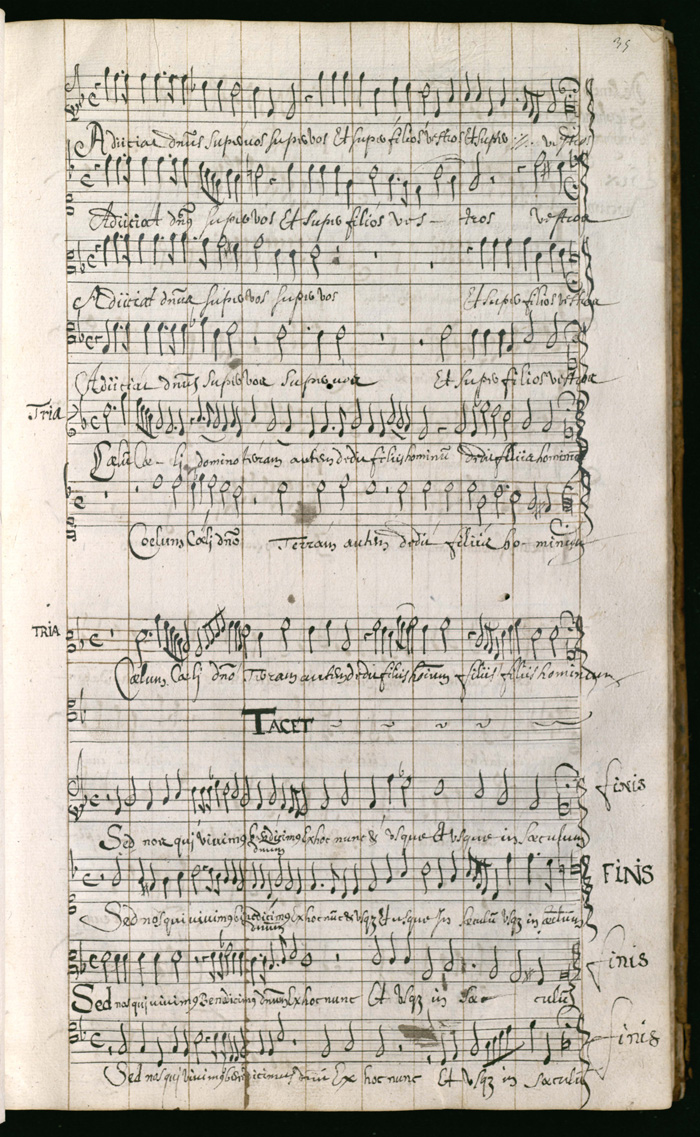 35
Adiiciat dn̄us super vos super vos Et super filios vestros Et super
Adiiciat super vos Et super filios ves - tros vestros
Adiiciat super vos super vos Et super filios vestros
Adiiciat dn̄us super vos super vos Et super filios vestros
Tria
Cœlū Cœ - li domino terram autem dedit filiis hominū dedit filiis
Coelum Cœli dn̄o Terram autem dedit filiis ho- minum
TRIA
Cœlum Cœli dn̄o Terram autem dedit filiis filiis filiis hominum
TACET
Sed nos qui vivimus Ex hoc nunc & usque Et usque in sæculum
finis
Sed nos qui vivimus Ex hoc nūc & usqz Et usque in sæculū usqz in
FINIS
Sed nos qui vivimus Benedicimus Ex hoc nunc Et usqz in sæ culū
finis
Sed nos qui vivimus benedicimus Ex hoc nunc Et usqz in sæculū
finis